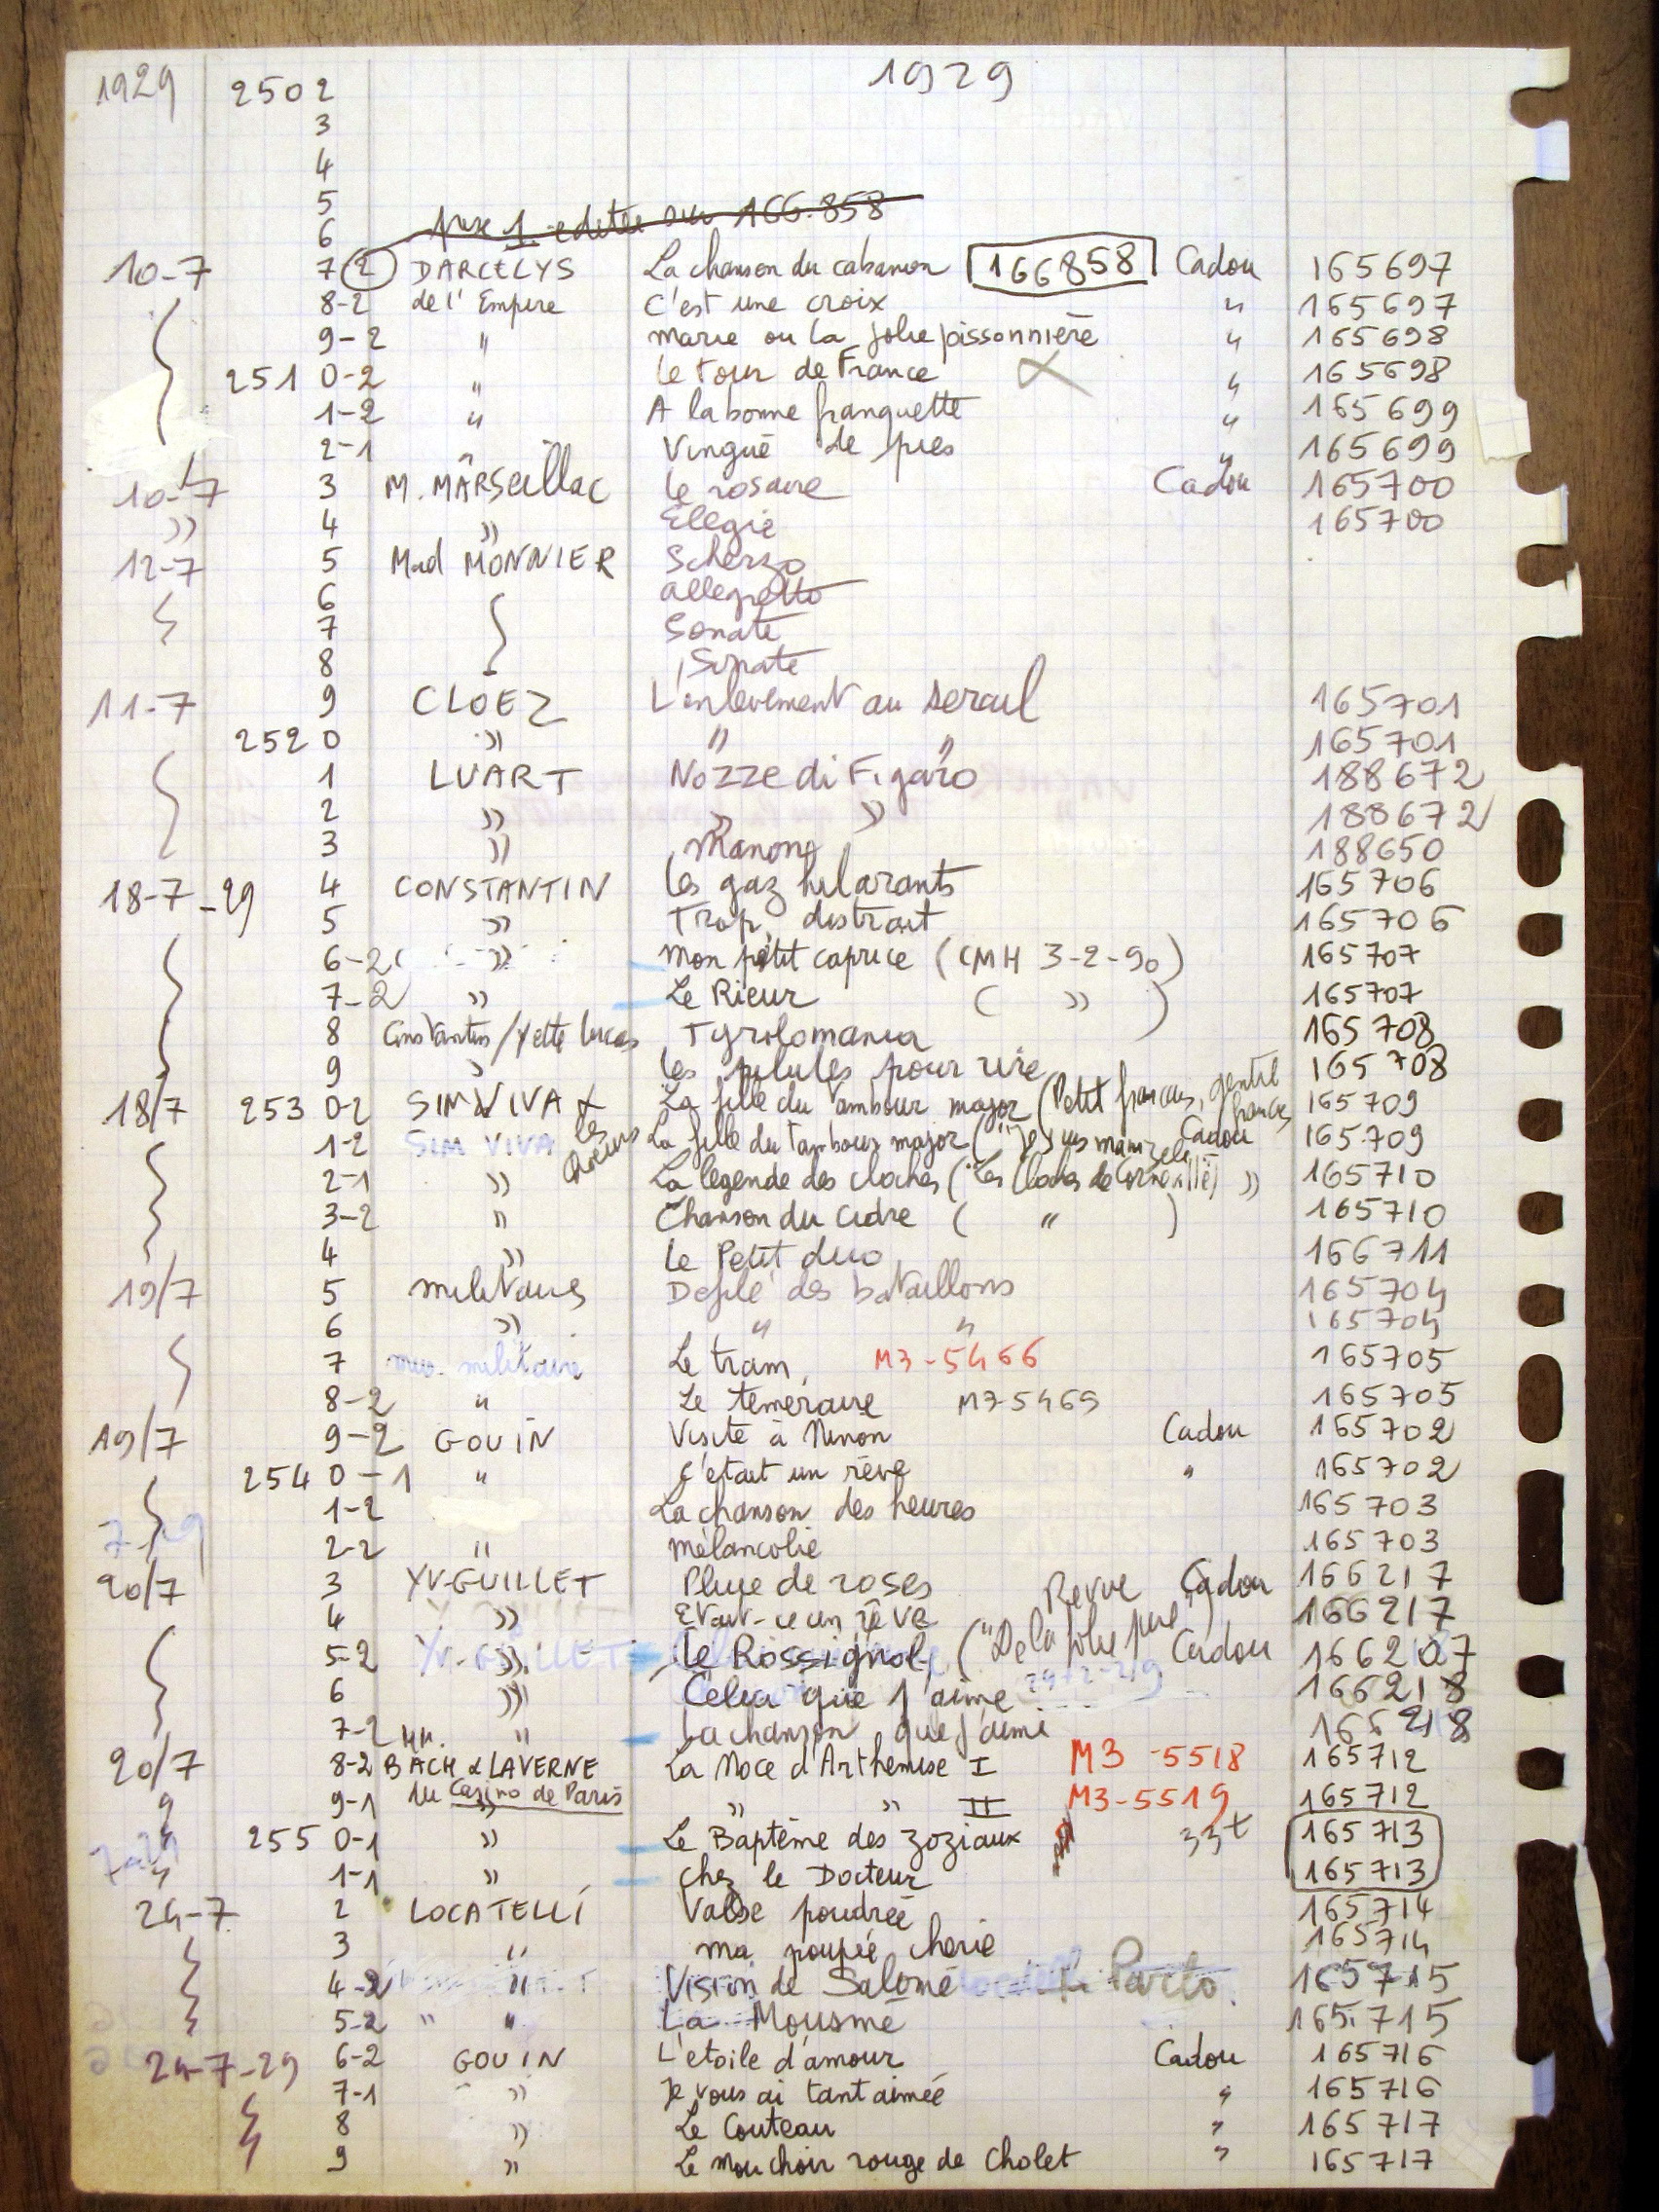 1929 2502 1929
3
4
5
6 prise 1 editée sur 166.858
10-7 7 2 DARCELYS La chanson du cabanon 166858 Cadou 165697
8-2 de l'Empire C'est une croix " 165697
9-2 " Marie ou la jolie pissonnière " 165698
251 0-2 " Le tour de France " 165698
1-2 " A la bonne franquette " 165699
2-1 " Vingué de pres " 165699
10-7 3 M. MARSeillac Le rosaire Cadou 165700
" 4 " Elegie 165700
12-7 5 Mad MONNIER Scherzo
6 allegretto
7 Sonate
8 Sonate
11-7 9 CLOEZ L'enlevement au serail 165701
252 0 " " " 165701
1 LUART Nozze di Figaro 188672
2 " " " 188672
3 " Manon 188650
18-7-29 4 CONSTANTIN Les gaz hilarants 165706
5 " Trop distrait 165706
6-2 " Mon petit caprice (CMH 3-2-90) 165707
7-2 " Le Rieur ( " ) 165707
8 Constantin/Yette Lucas Tyrolomania 165708
9 " Les pilules pour rire 165708
18/7 253 0-2 SIM VIVA La fille du Tambour major (Petit francais, gentil francais 165709
1-2 SIM VIVA les choeurs La fille du Tambour major ( Cadou 165.709
2-1 " La legende des cloches (Les Cloches de Corneville) " 165710
3-2 " Chanson du cidre ( " ) 165710
4 " Le Petit duo 166711
19/7 5 militaires Defilé des bataillons 165704
6 " " " 165704
7 mus. militaire Le tram M3-5466 165705
8-2 " Le temeraire M3-5469 165705
19/7 9-2 GOUIN Visite à Ninon Cadou 165702
254 0-1 " C'etait un rêve " 165702
1-2 La chanson des heures 165703
2-2 " Mélancolie 165703
20/7 3 YV-GUILLET Pluie de roses Revue Cadou 166217
4 " Etait-ce un rêve 166217
5-2 " Le Rossignol ("De la folie pure") Cadou 166207
6 " Celui que j'aime 166218
7-2 " La chanson que j'aime 166218
20/7 8-2 MM. BACH & LAVERNE La Noce d'Arthemise I M3-5518 165712
9-1 du Casino de Paris " " II M3-5519 165712
255 0-1 " Le Baptême des zoziaux 33t 165713
1-1 " Chez le Docteur 165713
24-7 2 LOCATELLI Valse poudrée 165714
3 " Ma poupée cherie 165714
4-2 " Vision de Salomé 165715
5-2 " " La Mousmé 165.715
24-7-29 6-2 GOUIN L'etoile d'amour Cadou 165716
7-1 " Je vous ai tant aimée " 165716
8 " Le Couteau " 165717
9 " Le Mouchoir rouge de Cholet " 165717